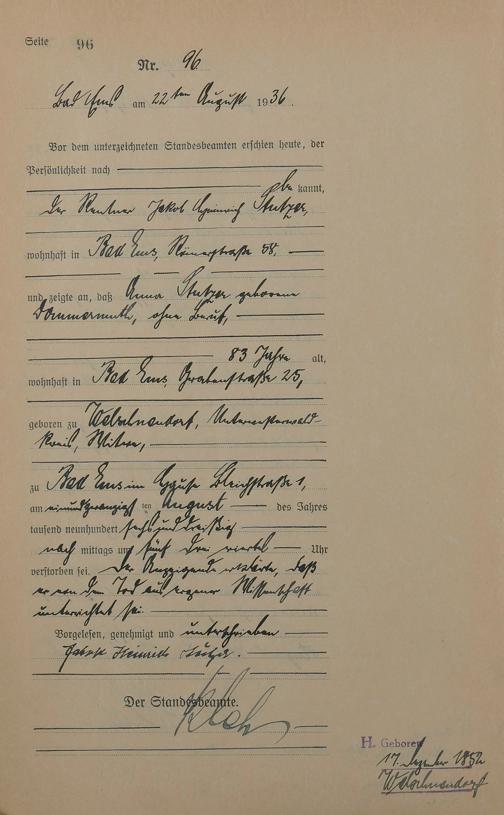 Seite 96
Nr. 96
Bad Ems am 22ten August 1936.
Vor dem unterzeichneten Standesbeamten erschien heute, der
Persönlichkeit nach
be kannt,
der Rentner Jakob Heinrich Stutzer,
wohnhaft in Bad Ems, Römerstraße 58,
und zeigte an, daß Anna Stutzer geborene
Dommermuth, ohne Beruf,
83 Jahre alt,
wohnhaft in Bad Ems, Grabenstraße 25,
geboren zu Welschneudorf, Unterwesterwald-
kreis, Witwe,
zu Bad Ems im Hause Bleichstraße 1,
am einundzwanzigsten August des Jahres
tausend neunhundert sechsunddreißig
nach mittags um fünf drei viertel Uhr
verstorben sei. Der Anzeigende erklärte, daß
er von dem Tod aus eigener Wissenschaft
unterrichtet sei.
Vorgelesen, genehmigt und unterschrieben
Jakob Heinrich
Der Standesbeamte.
H. Geboren
17. Dezember 1852
Welschneudorf